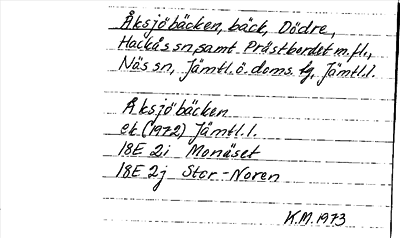 Åksjöbäcken, bäck, Dödre,
Hackås sn, samt Prästbordet m.fl.,
Näs sn, Jämtl. ö. doms. tg, Jämtl. l.
Åksjöbäcken
ek (1972) Jämtl. l.
18E 2i Monäset
18E 2j Stor-Noren
K.M. 1973